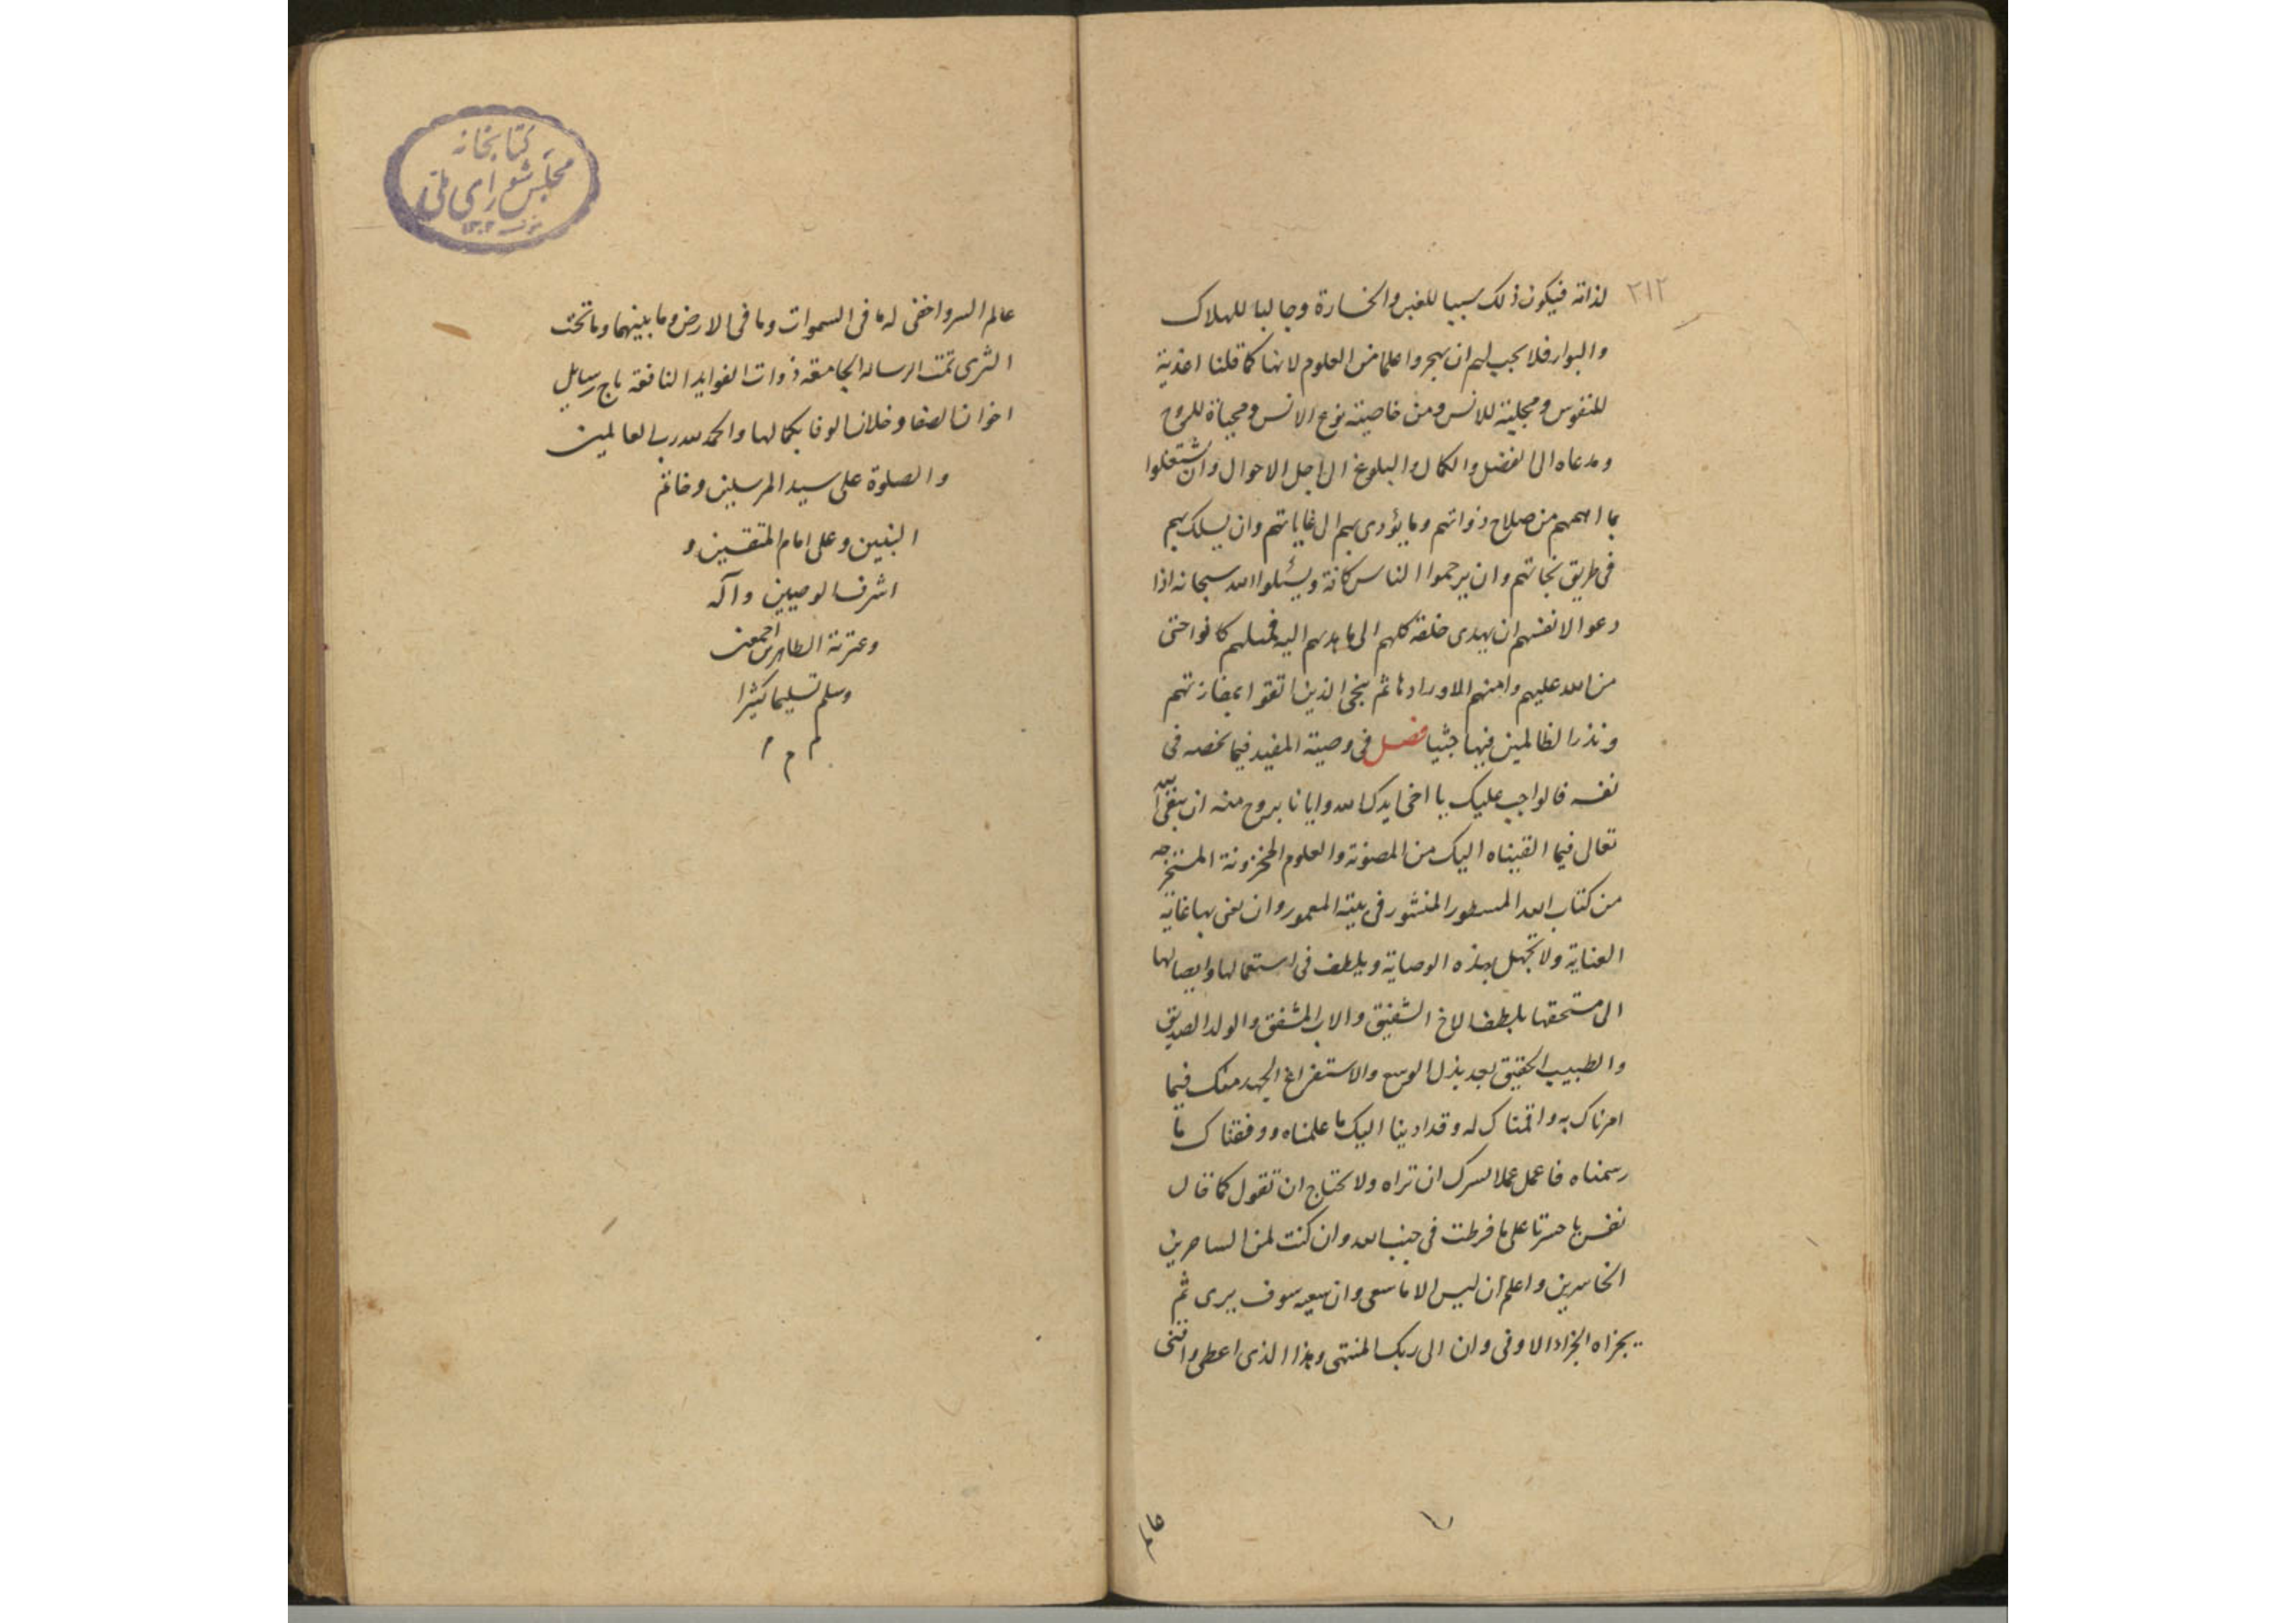 ٢١٢
لذاته فيكون ذلك سببا للغبن والخسارة وجالبا للهلاك
والبوار فلا يجب لهم ان يهجروا علما من العلوم لانها كما قلنا اغذية
للنفوس ومجلية للانس ومن خاصية نوع الانس ومحياة للروح
ومدعاه الى الفضل والكمال والبلوغ الى اجل الاحوال وان يشتغلوا
بما اهمهم من صلاح ذواتهم وما يؤدى بهم الى غاياتهم وان يسلك بهم
فى طريق نجاتهم وان يرحموا الناس كافة ويسئلوا الله سبحانه اذا
دعوا لانفسهم ان يهدى خلقه كلهم الى ما هديهم اليه فمثلهم كانوا حتى
من الله عليهم وا منهم الا واردها ثم ننجى الذين اتقوا بمفازتهم
ونذر الظالمين فيها جثيا فصل فى وصية المفيد فيما يخصه فى
نفسه فالواجب عليك يا اخى ايدك الله وايانا بروح منه ان تتقى الله
تعالى فيما القيناه اليك من المصونة والعلوم المخزونة المستخرجه
من كتاب الله المسطور المنشور فى بيته المعمور وان تعنى بها غاية
العناية ولا تجهل بهذه الوصاية ويلطف فى استعمالها وايصالها
الى مستحقها بلطف الاخ الشفيق والاب المشفق والولد الصديق
والطبيب الحقيق بعد بذل الوسع والاستفراغ الجهد منك فيما
امرناك به واقمناك له وقد ادينا اليك ما علمناه ووفقناك ما
رسمناه فاعمل عملا لسرك ان تراه ولا تحتاج ان تقول كما قال
نفس يا حسرتا على ما فرطت فى جنب الله وان كنت لمن الساخرين
الخاسرين واعلم ان ليس الا ما سعى وان سعيه سوف يرى ثم
يجزاه الجزاء الاوفى وان الى ربك المنتهى وهذا الذى اعطى واقنى
عالم
كتابخانه
مجلس شوراى ملى
عالم السر واخفى له ما فى السموات وما فى الارض وما بينهما وما تحت
الثرى تمت الرساله الجامعة ذوات الفوايد النافعة تاج رسايل
اخوان الصفا وخلان الوفا بكمالها والحمد لله رب العالمين
والصلوة على سيد المرسلين وخاتم
النبيين وعلى امام المتقين و
اشرف الوصيين وآله
وعترته الطاهرين اجمعين
وسلم تسليما كثيرا
م م م